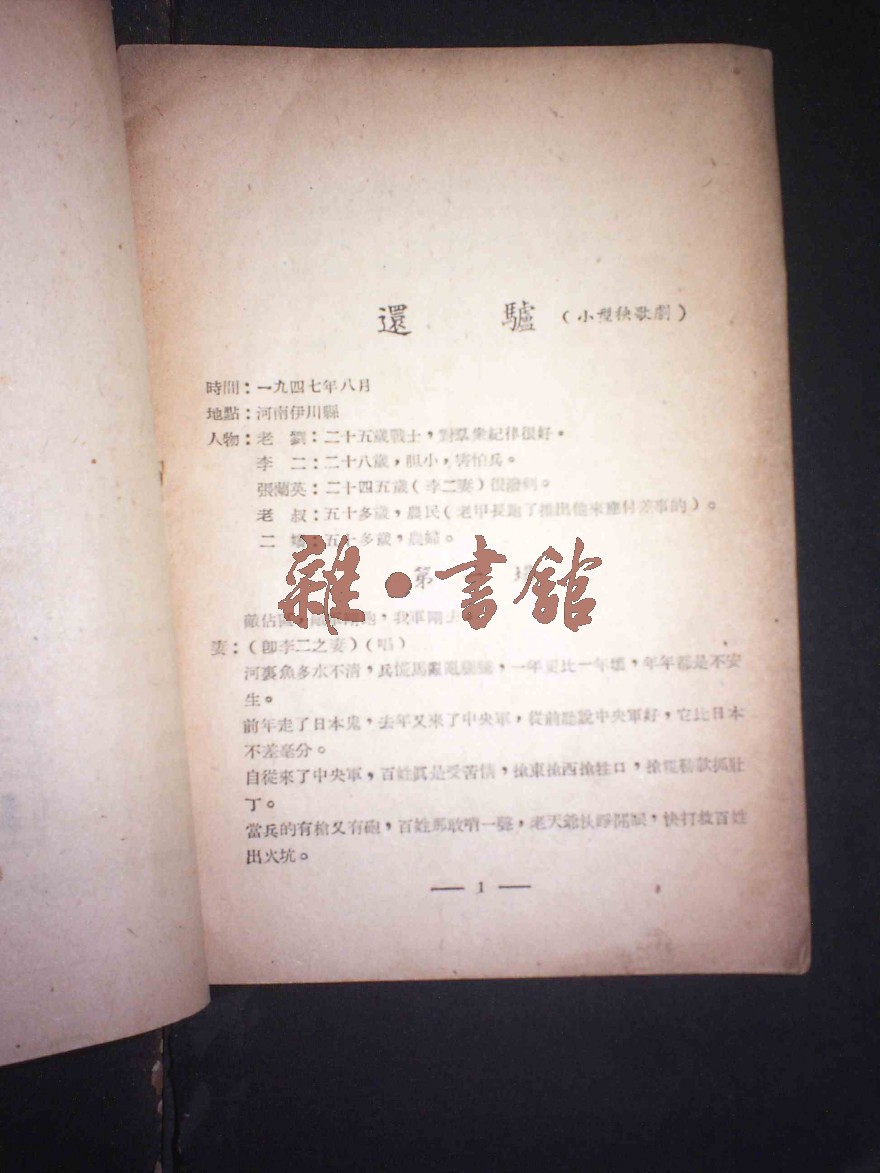 還 驢(小型秧歌劇)
時間:一九四七年八月
地點:河南伊川縣
人物:老 劉:二十五歲戰士,對羣衆紀律很好。
李 二:二十八歲,胆小,害怕兵。
張蘭英:二十四五歲(李二妻)很潑辣。
老 叔:五十多歲,農民(老甲長跑了推出他來應付差事的)。
二 五十多歲,農婦。
雜·書館
第 場
敵佔區,我軍剛去。
妻:(卽李二之妻)(唱)
河裏魚多水不清,兵慌馬亂,一年更比一年壞,年年都是不安
生。
前年走了日本鬼,去年又來了中央軍,從前聽說中央軍好,它比日本
不差毫分。
自從來了中央軍,百姓眞是受苦情,搶東搶西搶牲口,搶抓壯
丁。
當兵的有槍又有砲,百姓那敢哨一聲,老天爺快睜開眼,快打救百姓
出火坑。
— 1 —